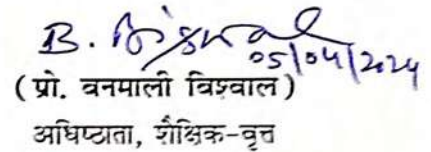 B. Biswal
05/04/2024
(प्रो. वनमाली विश्वाल)
अधिष्ठाता, शैक्षिक-वृत्त